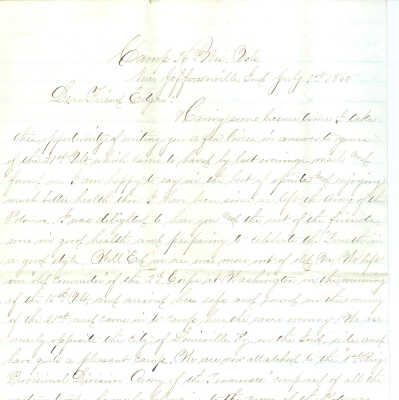 Camp
Near Jeffersonville Ind July 1865
Dear Friend Edgar
Having some leisure time I take
this opportunity of writing you a few lines in answer to yours
of the 21st Ult which came to hand by last evenings mail and
found me I am happy to say in the best of spirits and enjoying
much better health than I have been since we left the Army of the
Potomac. I was delighted to hear you and the rest of the friends
were in good health and preparing to celebrate the Fourth in
a good style. Well Ed we are now out of old Va. We left
our old Commander of the 2d Corps at Washington on the morning
of the 16th Ult and arrived here safe and sound on the evening
of the 21st and came in to camp on the same evening. We are
nearly opposite the city of Louisville Ky on the Ind side and
have quite a pleasant camp. We are now attached to the 1st Brig
Provisional Division Army of the Tennessee composed of all the